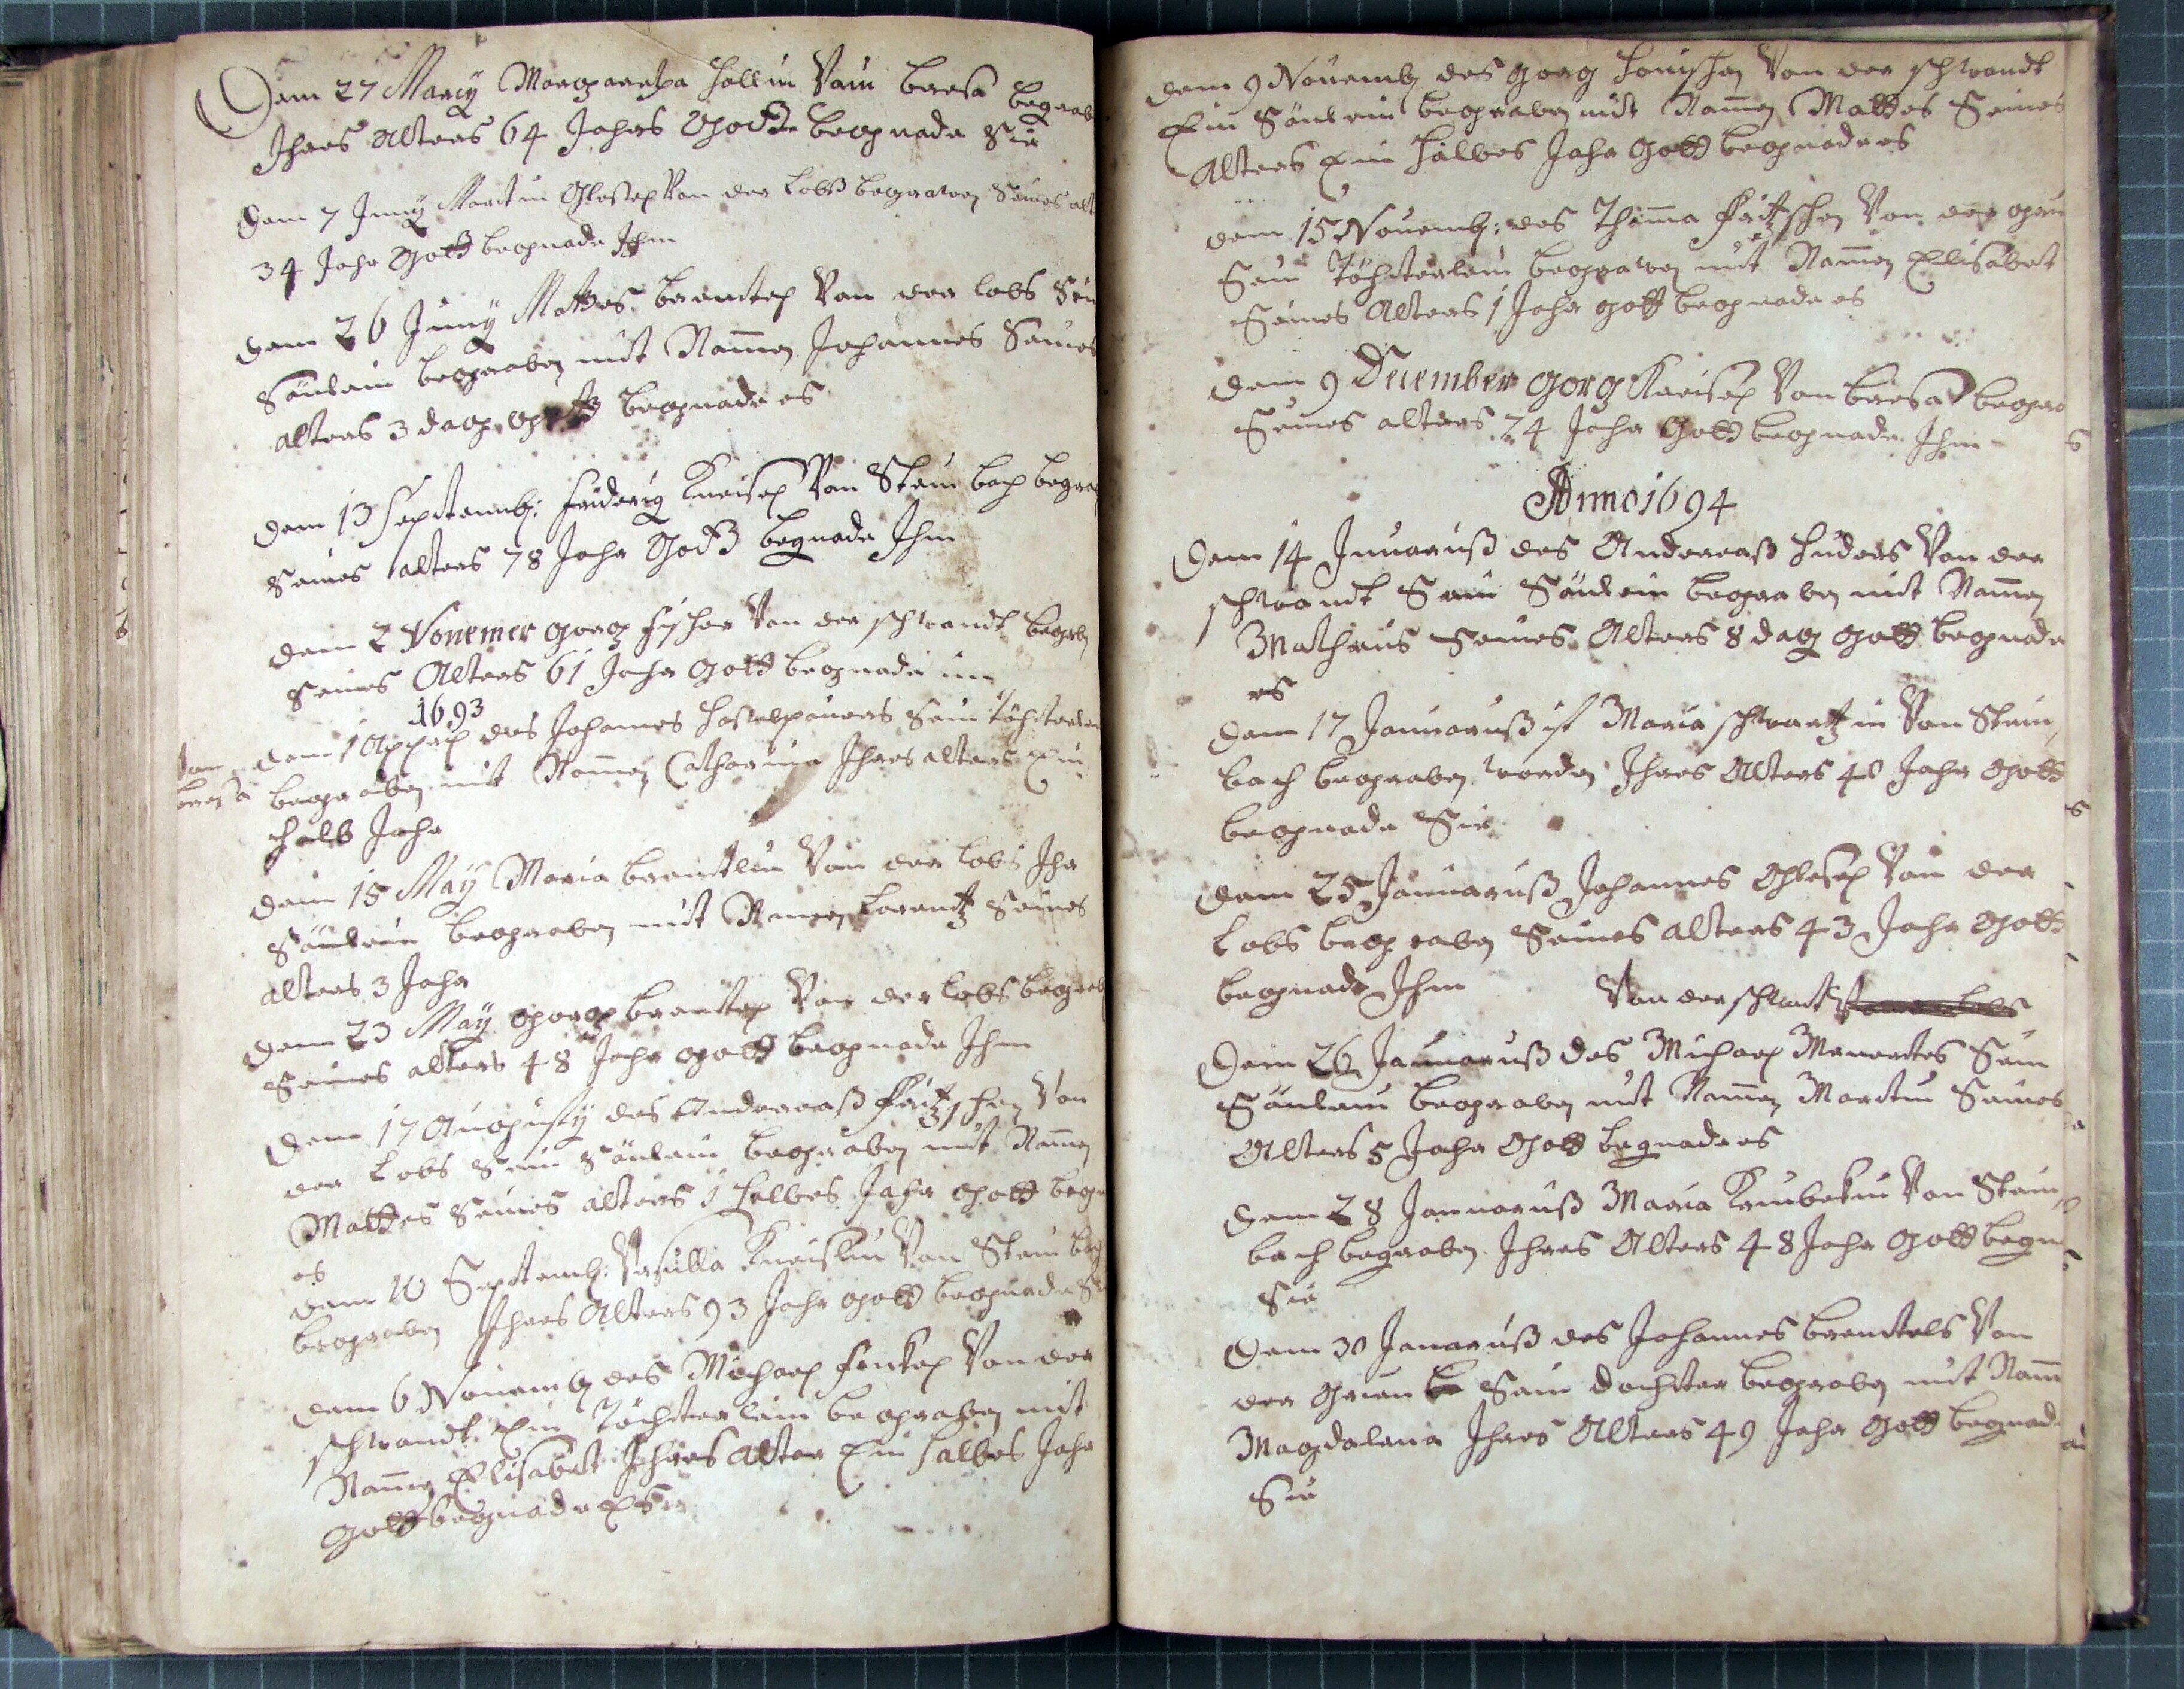 Dem 27 Marcy Margareta Hollin Vom bresa begrab
Jhres Alters 64 Jahrs Godt begnade Sie
Dem 7 Juny Mardin Von der Lobs begraben Seines alt
34 Jahr Gott begnade Jhm
Dem 26 Juny Mattes brendtel Von der lobs Sein
Sönlein begraben mit Namen Johannes Seines
alters 3 dag gott begnade es
Dem 13 Septemb: friderig Kneisel Von Steinbach begra
Seines alters 78 Jahr Godt begnade Jhm
Dem 2 Nouemer Gorg fischer Von der schwandt begrb
Seines Alters 61 Jahr Gott begnade im
1693
Dem 1 Appril des Johannes Sein töchterlein
Von
bresa
begraben mit Namen Catharina Jhres alters Ein
halb Jahr
Dem 15 May Maria brendtlin Von der lobs Jhr
Sönlein begraben mit Namen Lorendtz Seines
alters 3 Jahr
Dem 23 May Gorg brendtel Von der lobs begrab
Seines alters 48 Jahr Gott begnade Jhm
Dem 17 Augusty des Andereaß Fritzschen Von
der Lobs Sein Sönlein begraben mit Namen
Mattes Seines alters 1 halbes Jahr Gott begn
es
Dem 10 Septemb: Vrsulla Kneislin Von Steinbach
begraben Jhres Alters 93 Jahr Gott begnade Si
Dem 6 Nouemb des Michael Von der
schwandt Ein Töchterlein begraben mit
Namen Elisabet Jhres alter Ein halbes Jahr
Gott begnade Es
dem 9 Nouemb des Gorg Von der schwandt
Ein Sönlein begraben mit Namen Mattes Seines
Alters Ein halbes Jahr Gott begnade es
dem 15 Nouemb: des Thoma Fritzschen Von der grün
Sein Töchterlein begraben mit Namen Ellisabet
Seines Alters 1 Jahr gott begnade es
dem 9 December Gorg Kneisel Von bresa begra
Seines alters 74 Jahr Gott begnade Jhm
Anno 1694
Dem 14 Jnuaruß des Andereaß Von der
schwandt Sein Sönlein begraben mit Namen
Matheus Seines Alters 8 dag Gott begnade
es
Dem 17 Januaruß ist Maria schwartzin Von Stein
bach begraben worden Jhres Alters 40 Jahr Gott
begnade Sie
Dem 25 Januaruß Johannes Von der
Lobs begraben Seines alters 43 Jahr Gott
begnade Jhm
Von der schwadt
Dem 26 Januaruß des Michael Sein
Sönlein begraben mit Namen Mardin Seines
Alters 5 Jahr Gott begnade es
Dem 28 Januaruß Maria Von Stein
bach begraben Jhres Alters 48 Jahr Gott begn
Sie
Dem 30 Januaruß des Johannes brendtels Von
der Grün Sein dochter begraben mit Nam
Magdalena Jhres Alters 49 Jahr Gott begnad
Sie